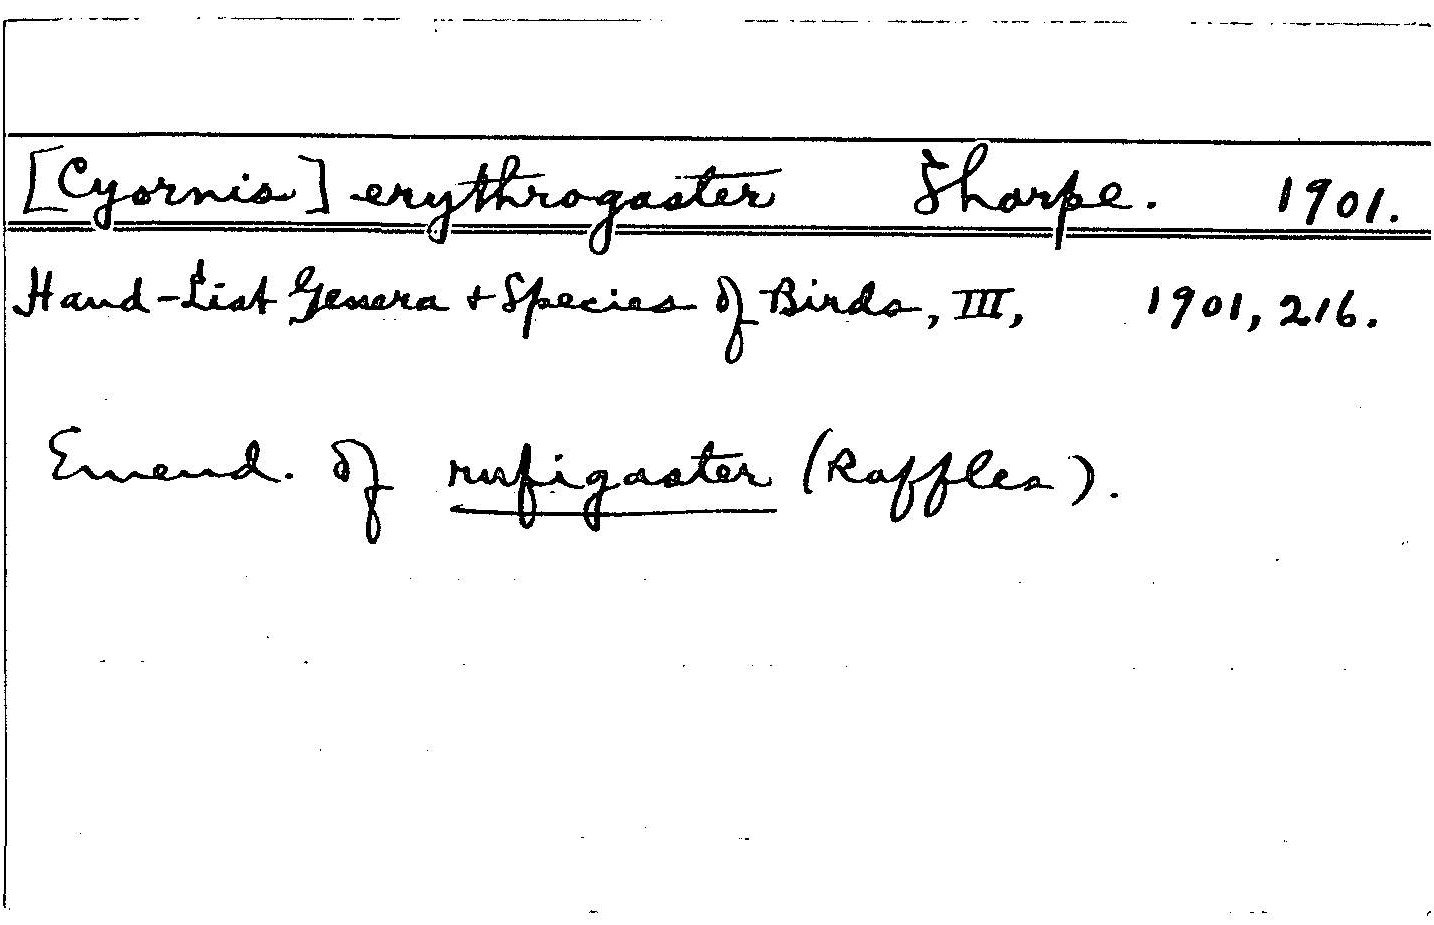 [Cyornis] erythrogaster Sharpe. 1901.
Hand-List Genera + Species of Birds, III, 1901, 216.
Emend. of rufigaster (Raffles).